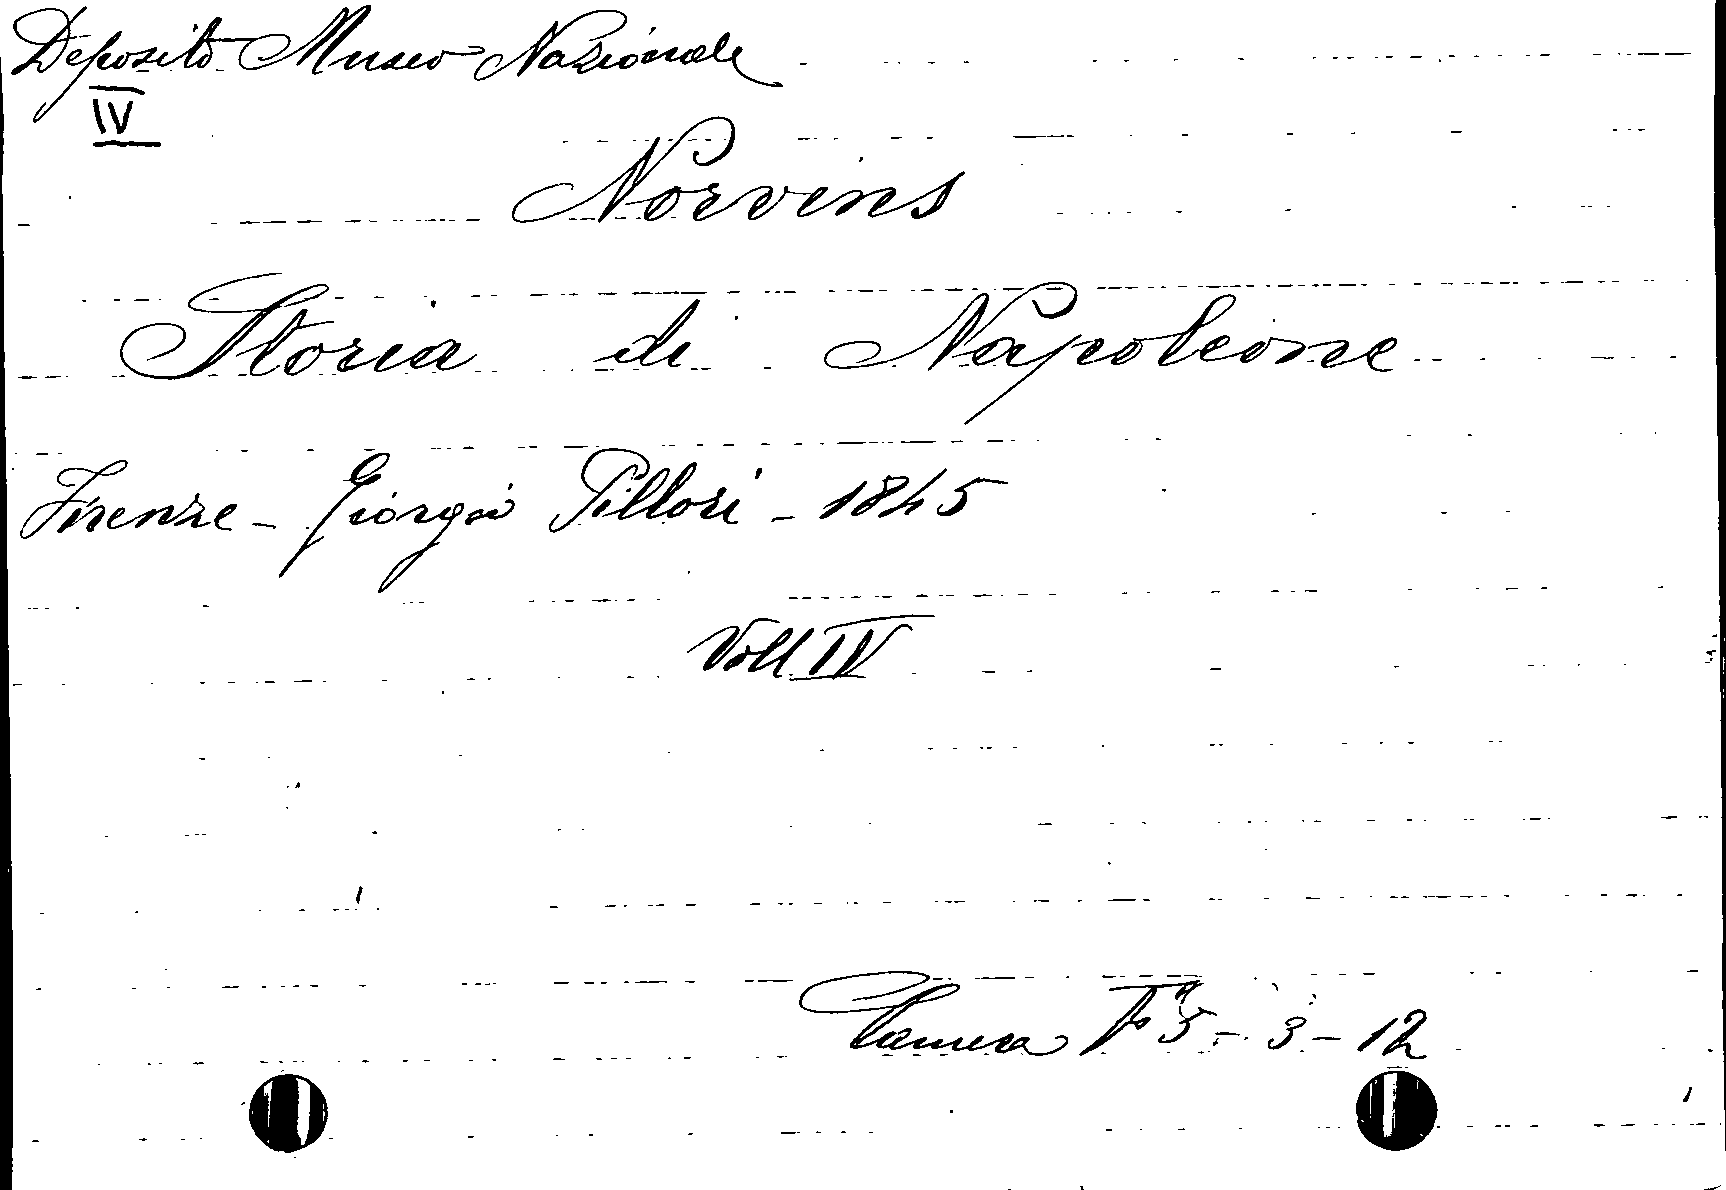 Deposito Museo Nazionale
IV
Norvins
Storia di Napoleone
Firenze - Giorgio Pillori - 1845
Voll IV
Camera 5 - 3 - 12